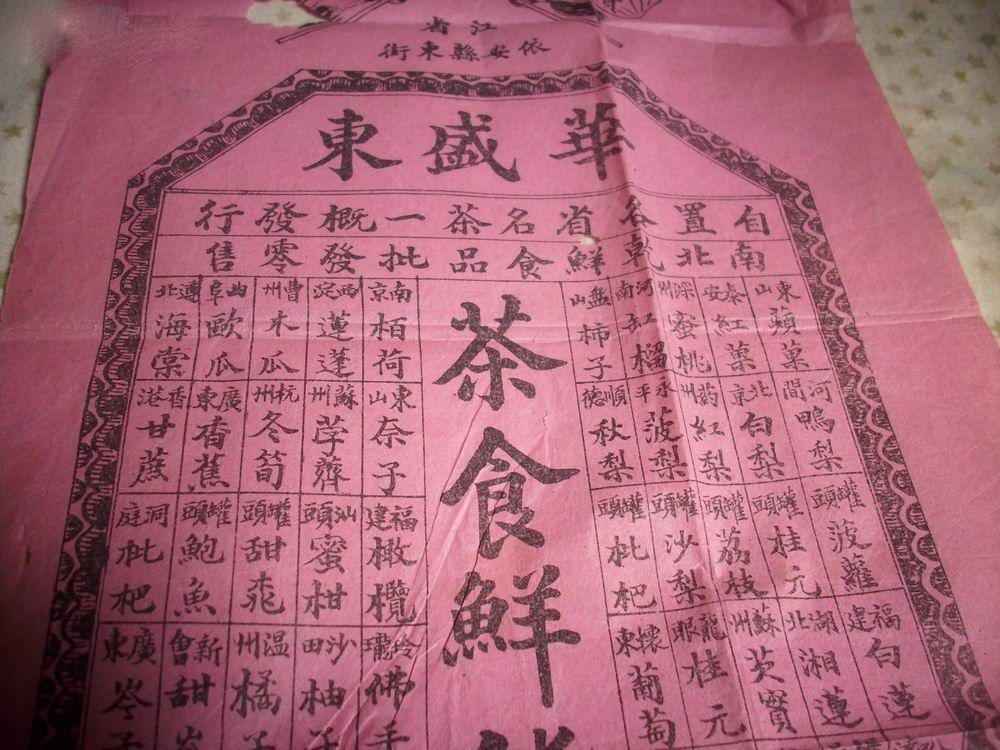 江省
依安縣東街
華盛東
自置各省名茶一概發行
南北乾鮮食品批發零售
東山蘋菓
泰安紅菓
深州蜜桃
河南紅榴
盤山柿子
河間鴨梨
北京白梨
葯州紅梨
永平菠梨
順德秋梨
罐頭菠蘿
罐頭桂元
罐頭荔枝
罐頭沙梨
罐頭枇杷
福建白蓮
湖北湘蓮
蘇州芡實
龍眼桂元
懷東葡萄
茶食鮮
南京栢荷
西淀蓮蓬
曹州木瓜
曲阜歐瓜
遵北海棠
東山奈子
蘇州荸薺
杭州冬筍
廣東香蕉
香港甘蔗
福建橄欖
汕頭蜜柑
罐頭甜桃
罐頭鮑魚
洞庭枇杷
玲瓏佛手
沙田柚子
温州橘子
新會甜岑
廣東岑子